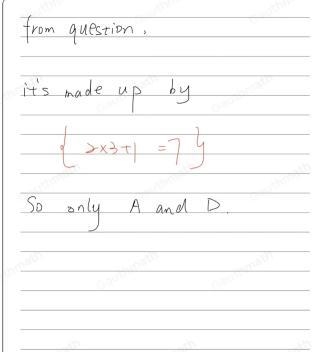 from question,
it's made up by
{ 2×3+1 =7 }
So only A and D.